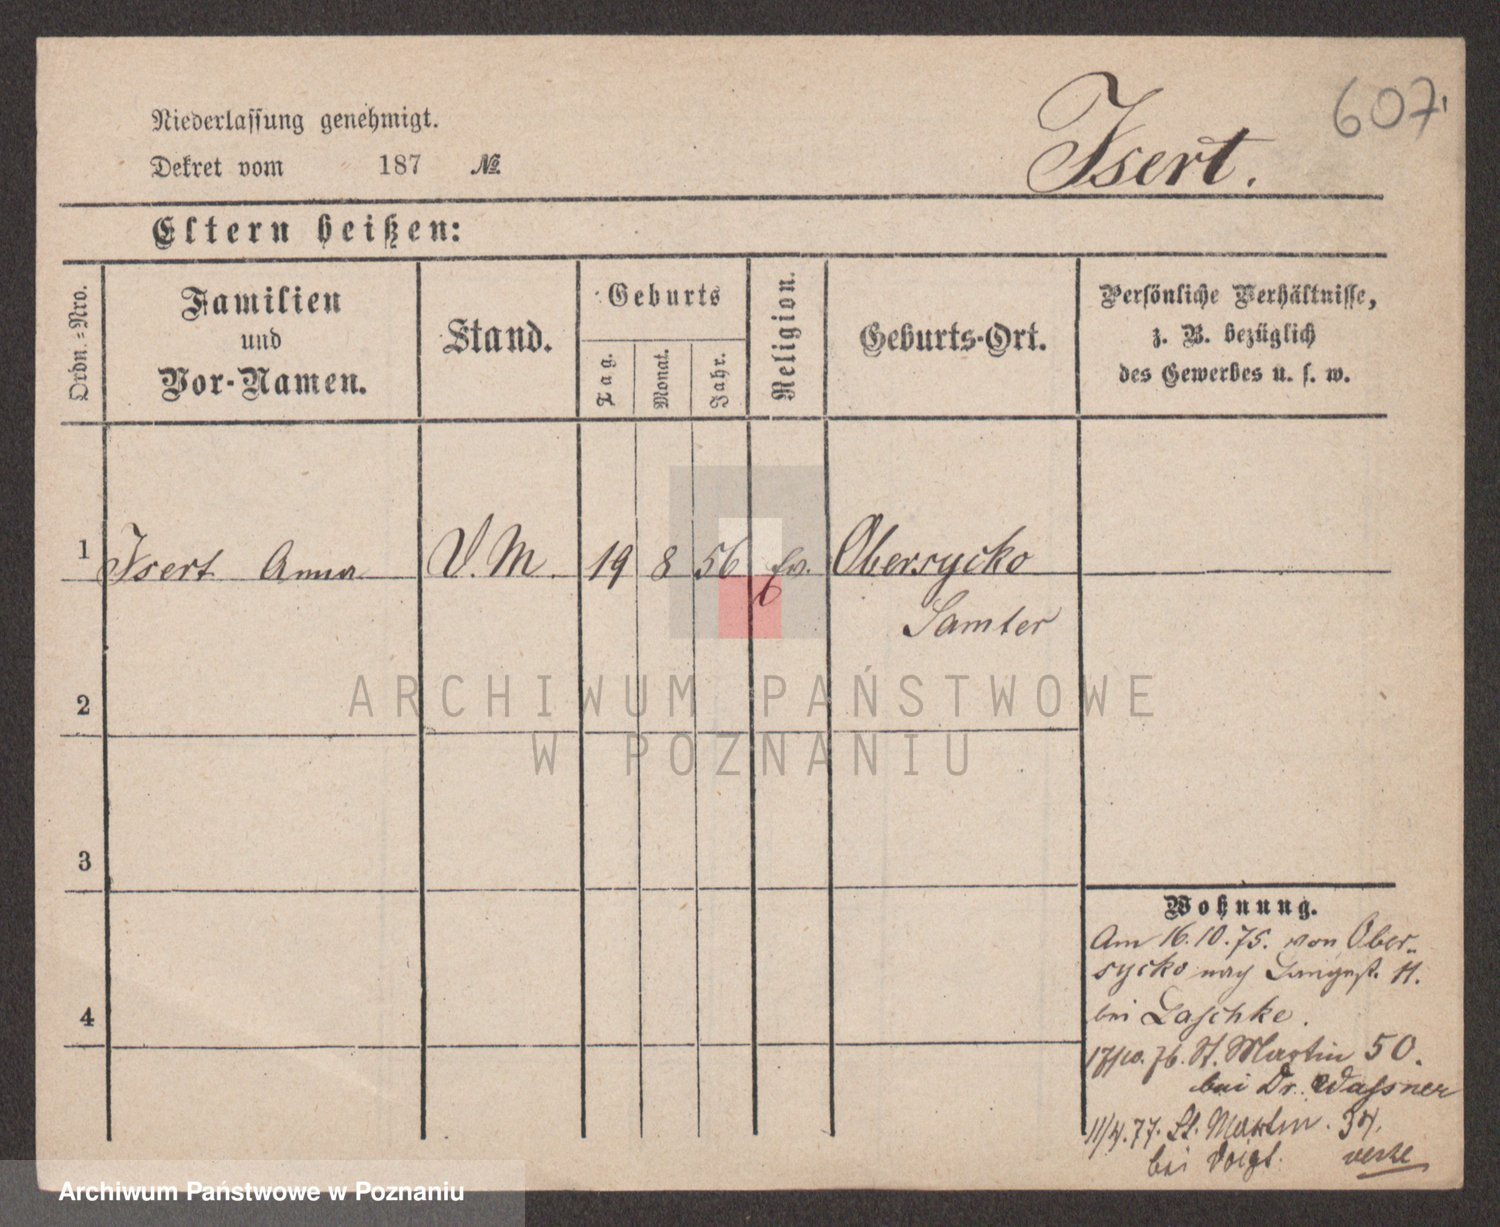 607
Niederlassung genehmigt.
Isert.
Dekret vom 187 №
Eltern heißen:
Ordn.-Nro.
Familien
und
Vor-Namen.
Stand.
Geburts
Tag.
Monat.
Jahr.
Religion.
Geburts-Ort.
Persönliche Verhältnisse,
z. B. bezüglich
des Gewerbes u. s. w.
1 Isert Anna V. M. 19 8 56 Ev. Obersycko
Samter
2
3
4
Wohnung.
Am 16.10.75. von Ober-
sycko nach Langest. 11.
bei Laschke.
17/10. 76. St. Martin 50.
bei Dr. Wassner
11/4. 77. St. Martin. 34.
bei Voigt. verte
ARCHIWUM PAŃSTWOWE
W POZNANIU
Archiwum Państwowe w Poznaniu